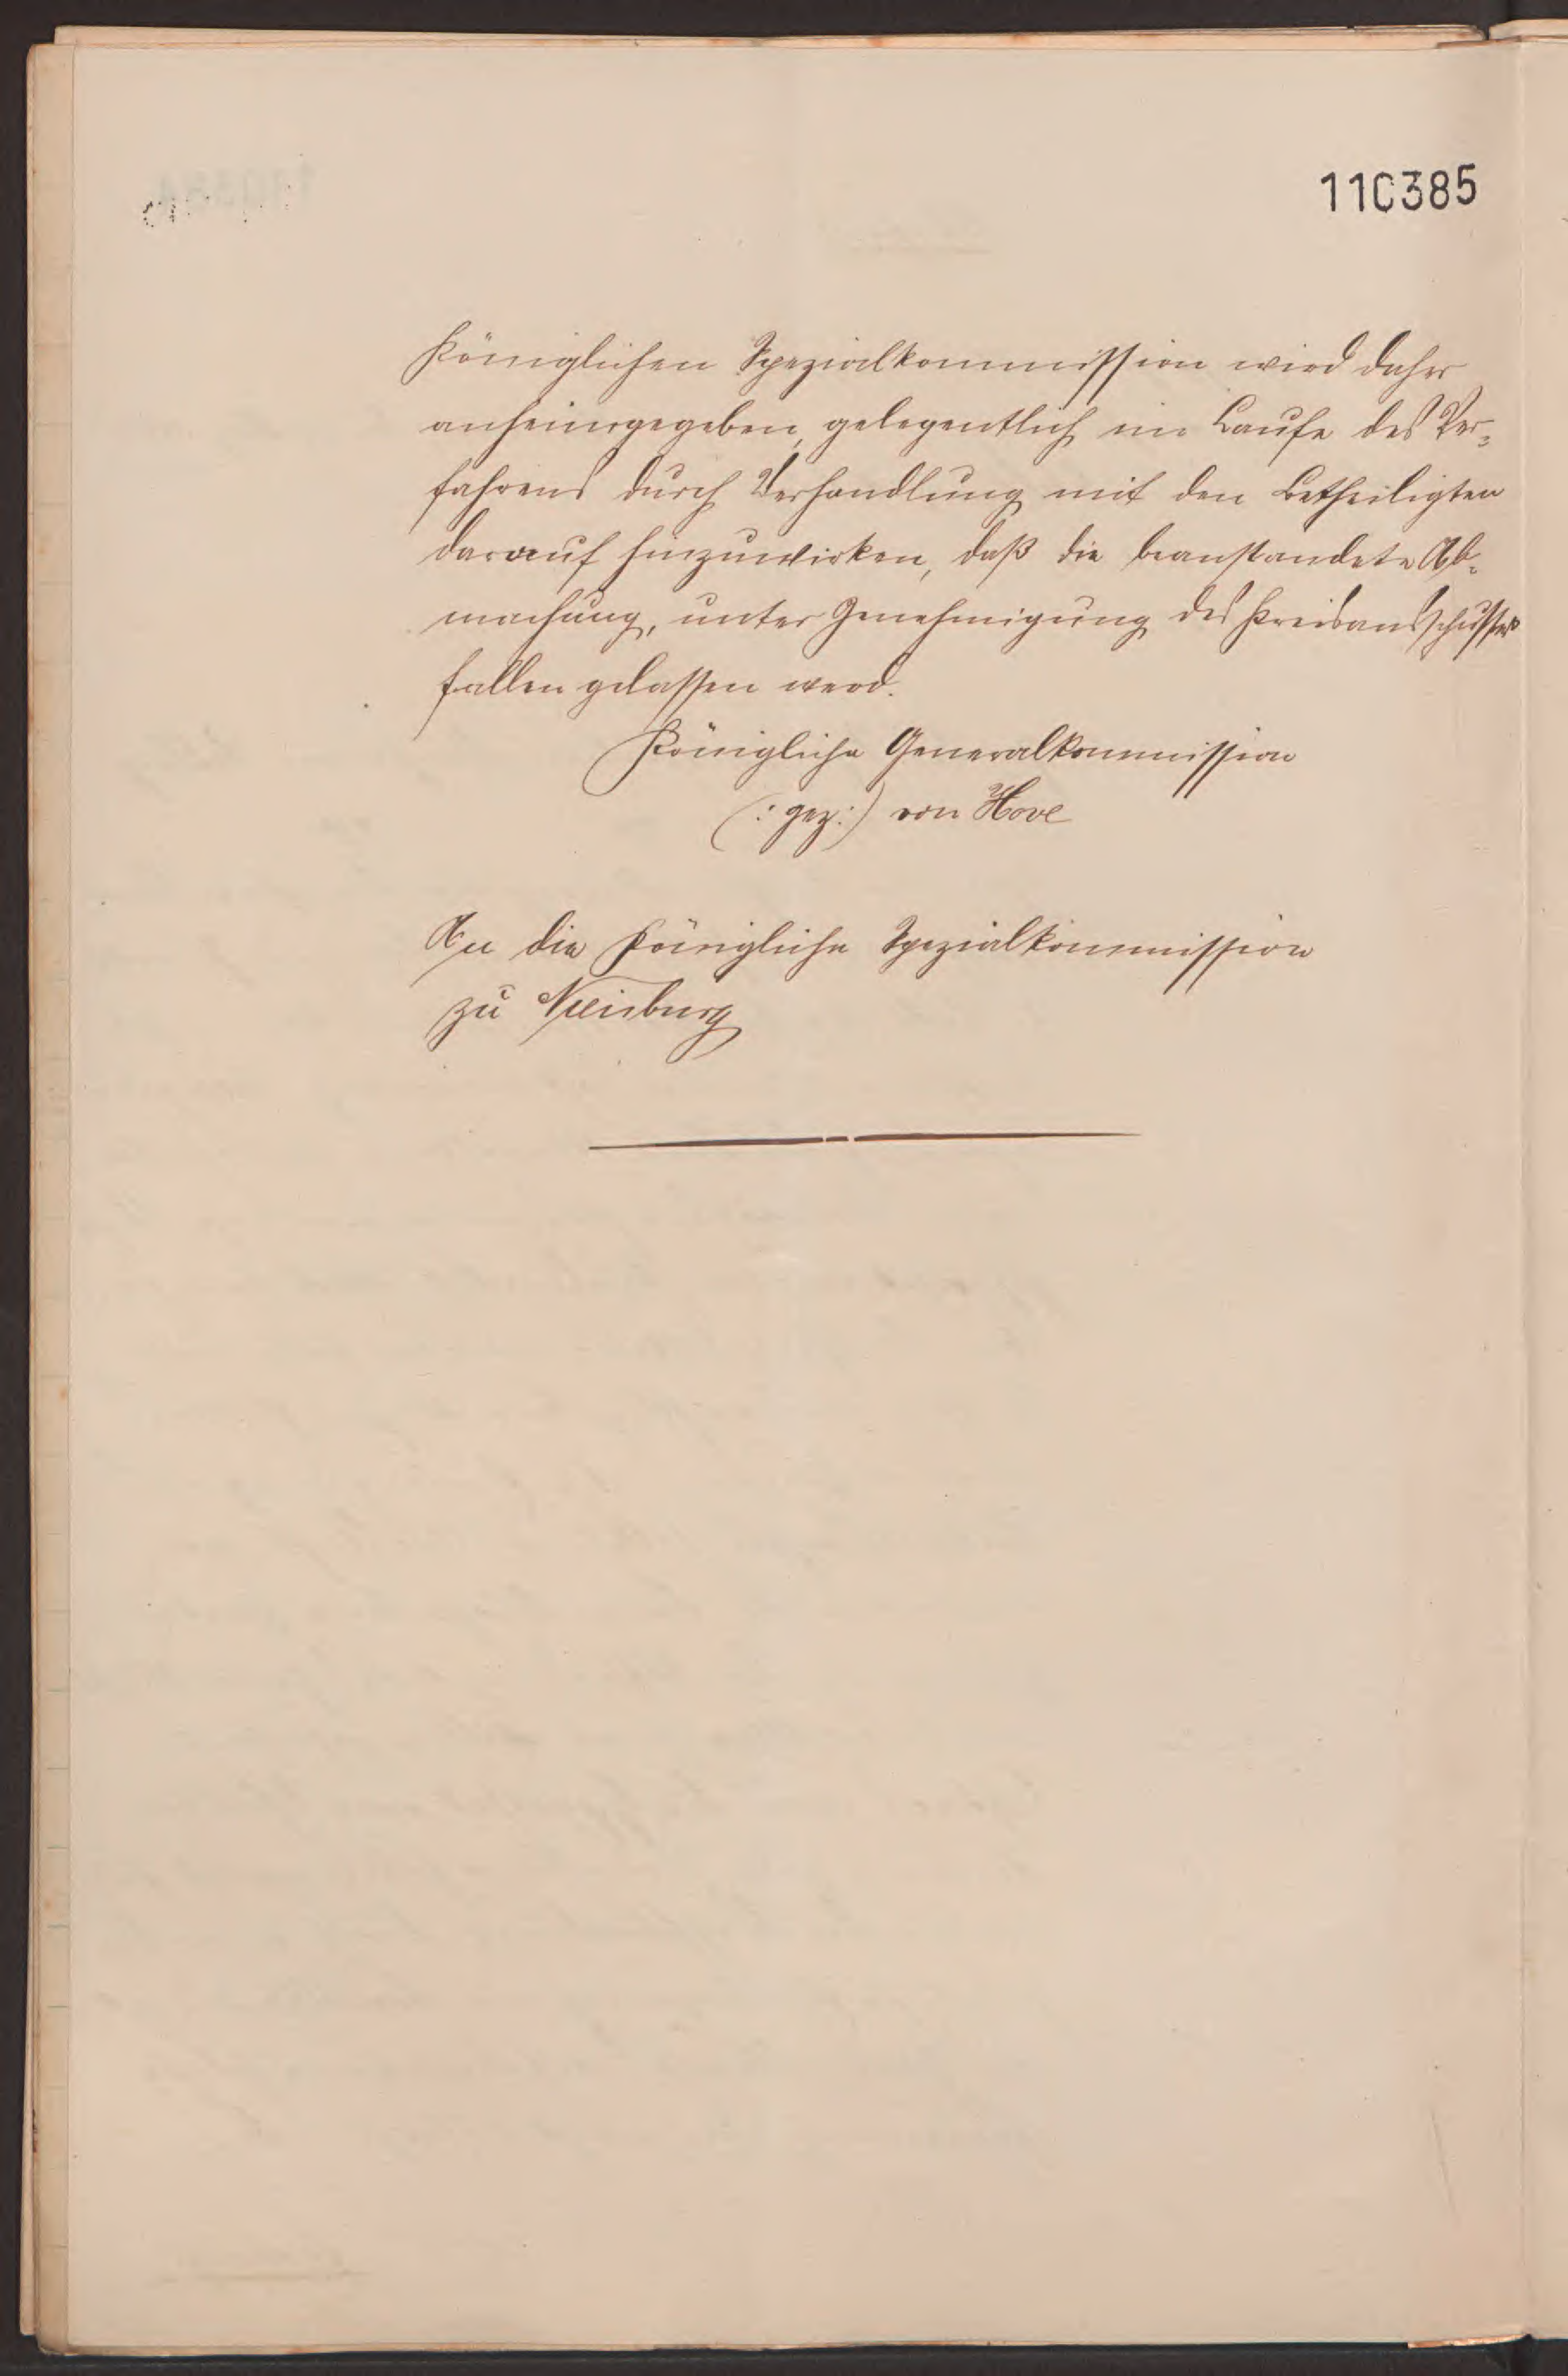 110385
Königlichen Spezialkommission wird daher
anheimgegeben, gelegentlich im Laufe des Ver-
fahrens durch Verhandlung mit den Betheiligten
darauf hinzuwirken, daß die beanstandete Ab-
machung, unter Genehmigung des Kreisausschusses
fallen gelassen werd.
Königliche Generalkommission
(: gez:) von Hove
An die Königliche Spezialkommission
zu